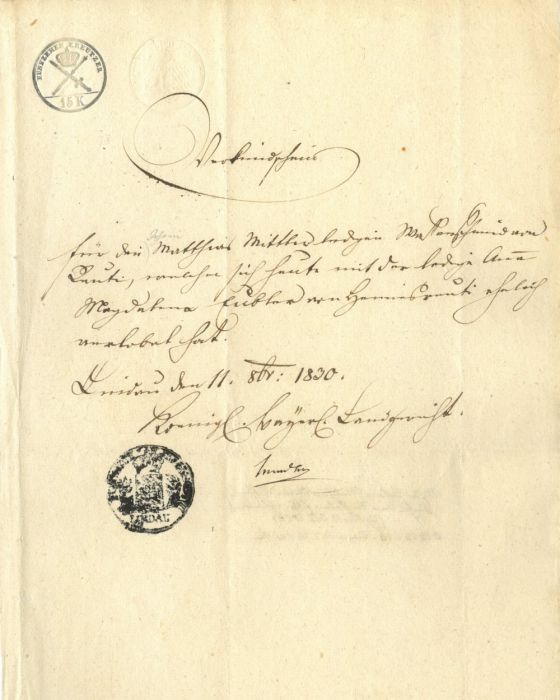 FÜNFZEHEN KREUTZER
15 K
Verkündschein
für den Matthias Mittler ledigen Waffenschmid von
Reuti, welcher sich heute mit der ledigen Anna
Magdalena von ehelich
verlobet hat.
Lindau den 11. 8br: 1830.
Koenigl. bayer. Landgericht.
LINDAU